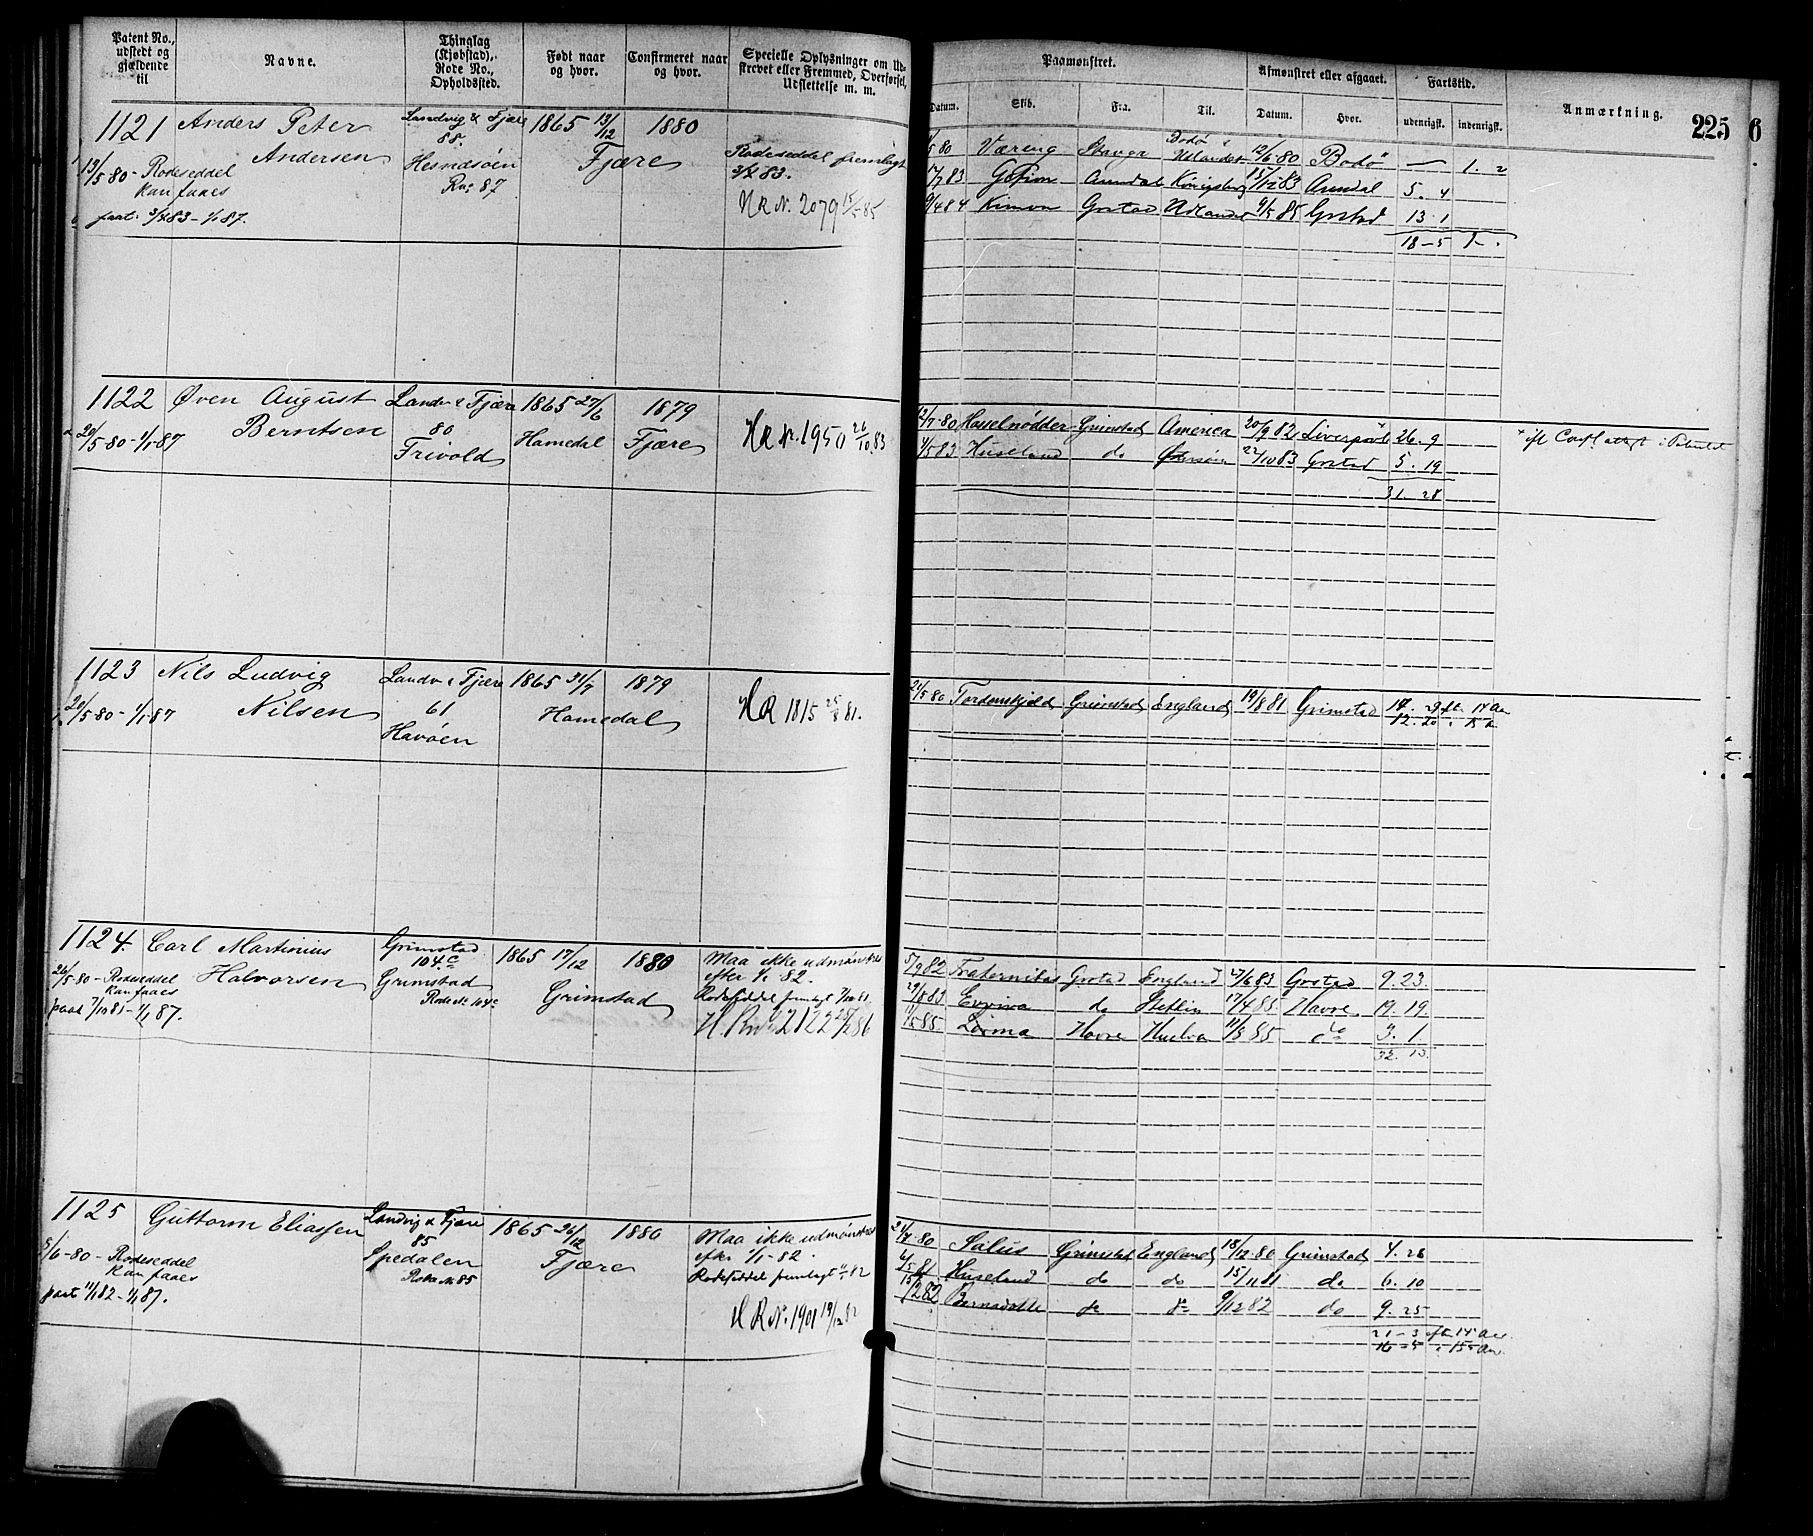 Patent No., udstedt og gjældende til
Navne.
Thinglag (Kjøbstad), Rode No., Opholdssted.
Født naar og hvor.
Confirmeret naar og hvor.
Specielle Oplysninger om Udskrevet eller Fremmed, Overførsel, Udslettelse m. m.
Paamønstret.
Datum.
Skib.
Fra.
Til.
Afmønstret eller afgaaet.
Datum.
Hvor.
Fartstid.
udenrigsk.
indenrigsk.
Anmærkning.
225
6
1121 Anders Peter Andersen
13/5 80 - Rodeseddel
kan faaes
paat. 3/4 83 - 1/1 87.
Landvig & Fjære
88.
Hesnesøen
Ro: 87
1865 13/12 1880
Fjære
Rodeseddel fremlagt
3/4 83.
HR N. 2079 15/5 85
/5 80 Væring Stavga Bodø Udlandet 12/6 80 Bodø — 1. 2
17/7 83 Arendal Königsberg 15/12 83 Arendal 5. 4
9/4 84 Kimon Grstad Udlandet 9/5 85 Grstad 13. 1
18-5 1-.
1122 Øven August Berntsen
20/5-80-1/1-87
Landv & Fjære
80
Frivold
1865 27/6 1879
Homedal Fjære
HR N. 1950 26/10 83
12/7-80 Hasselnødden Grimstad America 20/9 82 Liverpool 26. 9
4/5 83 Huseland do Østersøen 22/10 83 Grstad 5. 19
31. 28
1123 Nils Ludvig Nilsen
20/5-80-1/1-87
Landv & Fjære
61
Havøen
1865 31/7 1879
Homedal
HR 1815 25/8 81.
24/5 80 Tordenskjold Grimstad England 19/8 81 Grimstad 14. 29 ft. 14 Aar
12. 20 " 15 Aar
1124. Carl Martinius Halvorsen
26/5-80-Rodeseddel
kan faaes
paat 7/10 81-1/1 87.
Grimstad
104c
Grimstad
Rode N. 104c
1865 17/12 1880
Grimstad
Maa ikke udmønstres
efter 1/1 82.
Rodeseddel fremlagt 7/10 81
H R N. 2122 /1 86
5/9 82 Fraternitas Grstad England 27/6 83 Grstad 9. 23.
29/8 83 Evviva do Stettin 17/4 85 Havre 19. 19.
11/5 85 Lorma Havre Huelva 11/8 85 do 3. 1.
32. 13.
1125 Guttorm Eliassen
5/6-80-Rodeseddel
kan faaes
paat 11/1 82-1/1 87.
Landvig & Fjære
85
Spedalen
Rode N. 85
1865 26/12 1880
Fjære
Maa ikke udmønstres
efter 1/1-82.
Rodeseddel fremlagt 11/1 82
HR N. 1901 19/12 82
21/7-80 Salus Grimstad England 18/12 80 Grimstad 4. 26
6/5 81 Huseland do do 15/11 81 do 6. 10
15/2 82 Bernadotte do do 9/12 82 do 9. 25
21-3 eft. 14 Aar
16-5 " 15 Aar